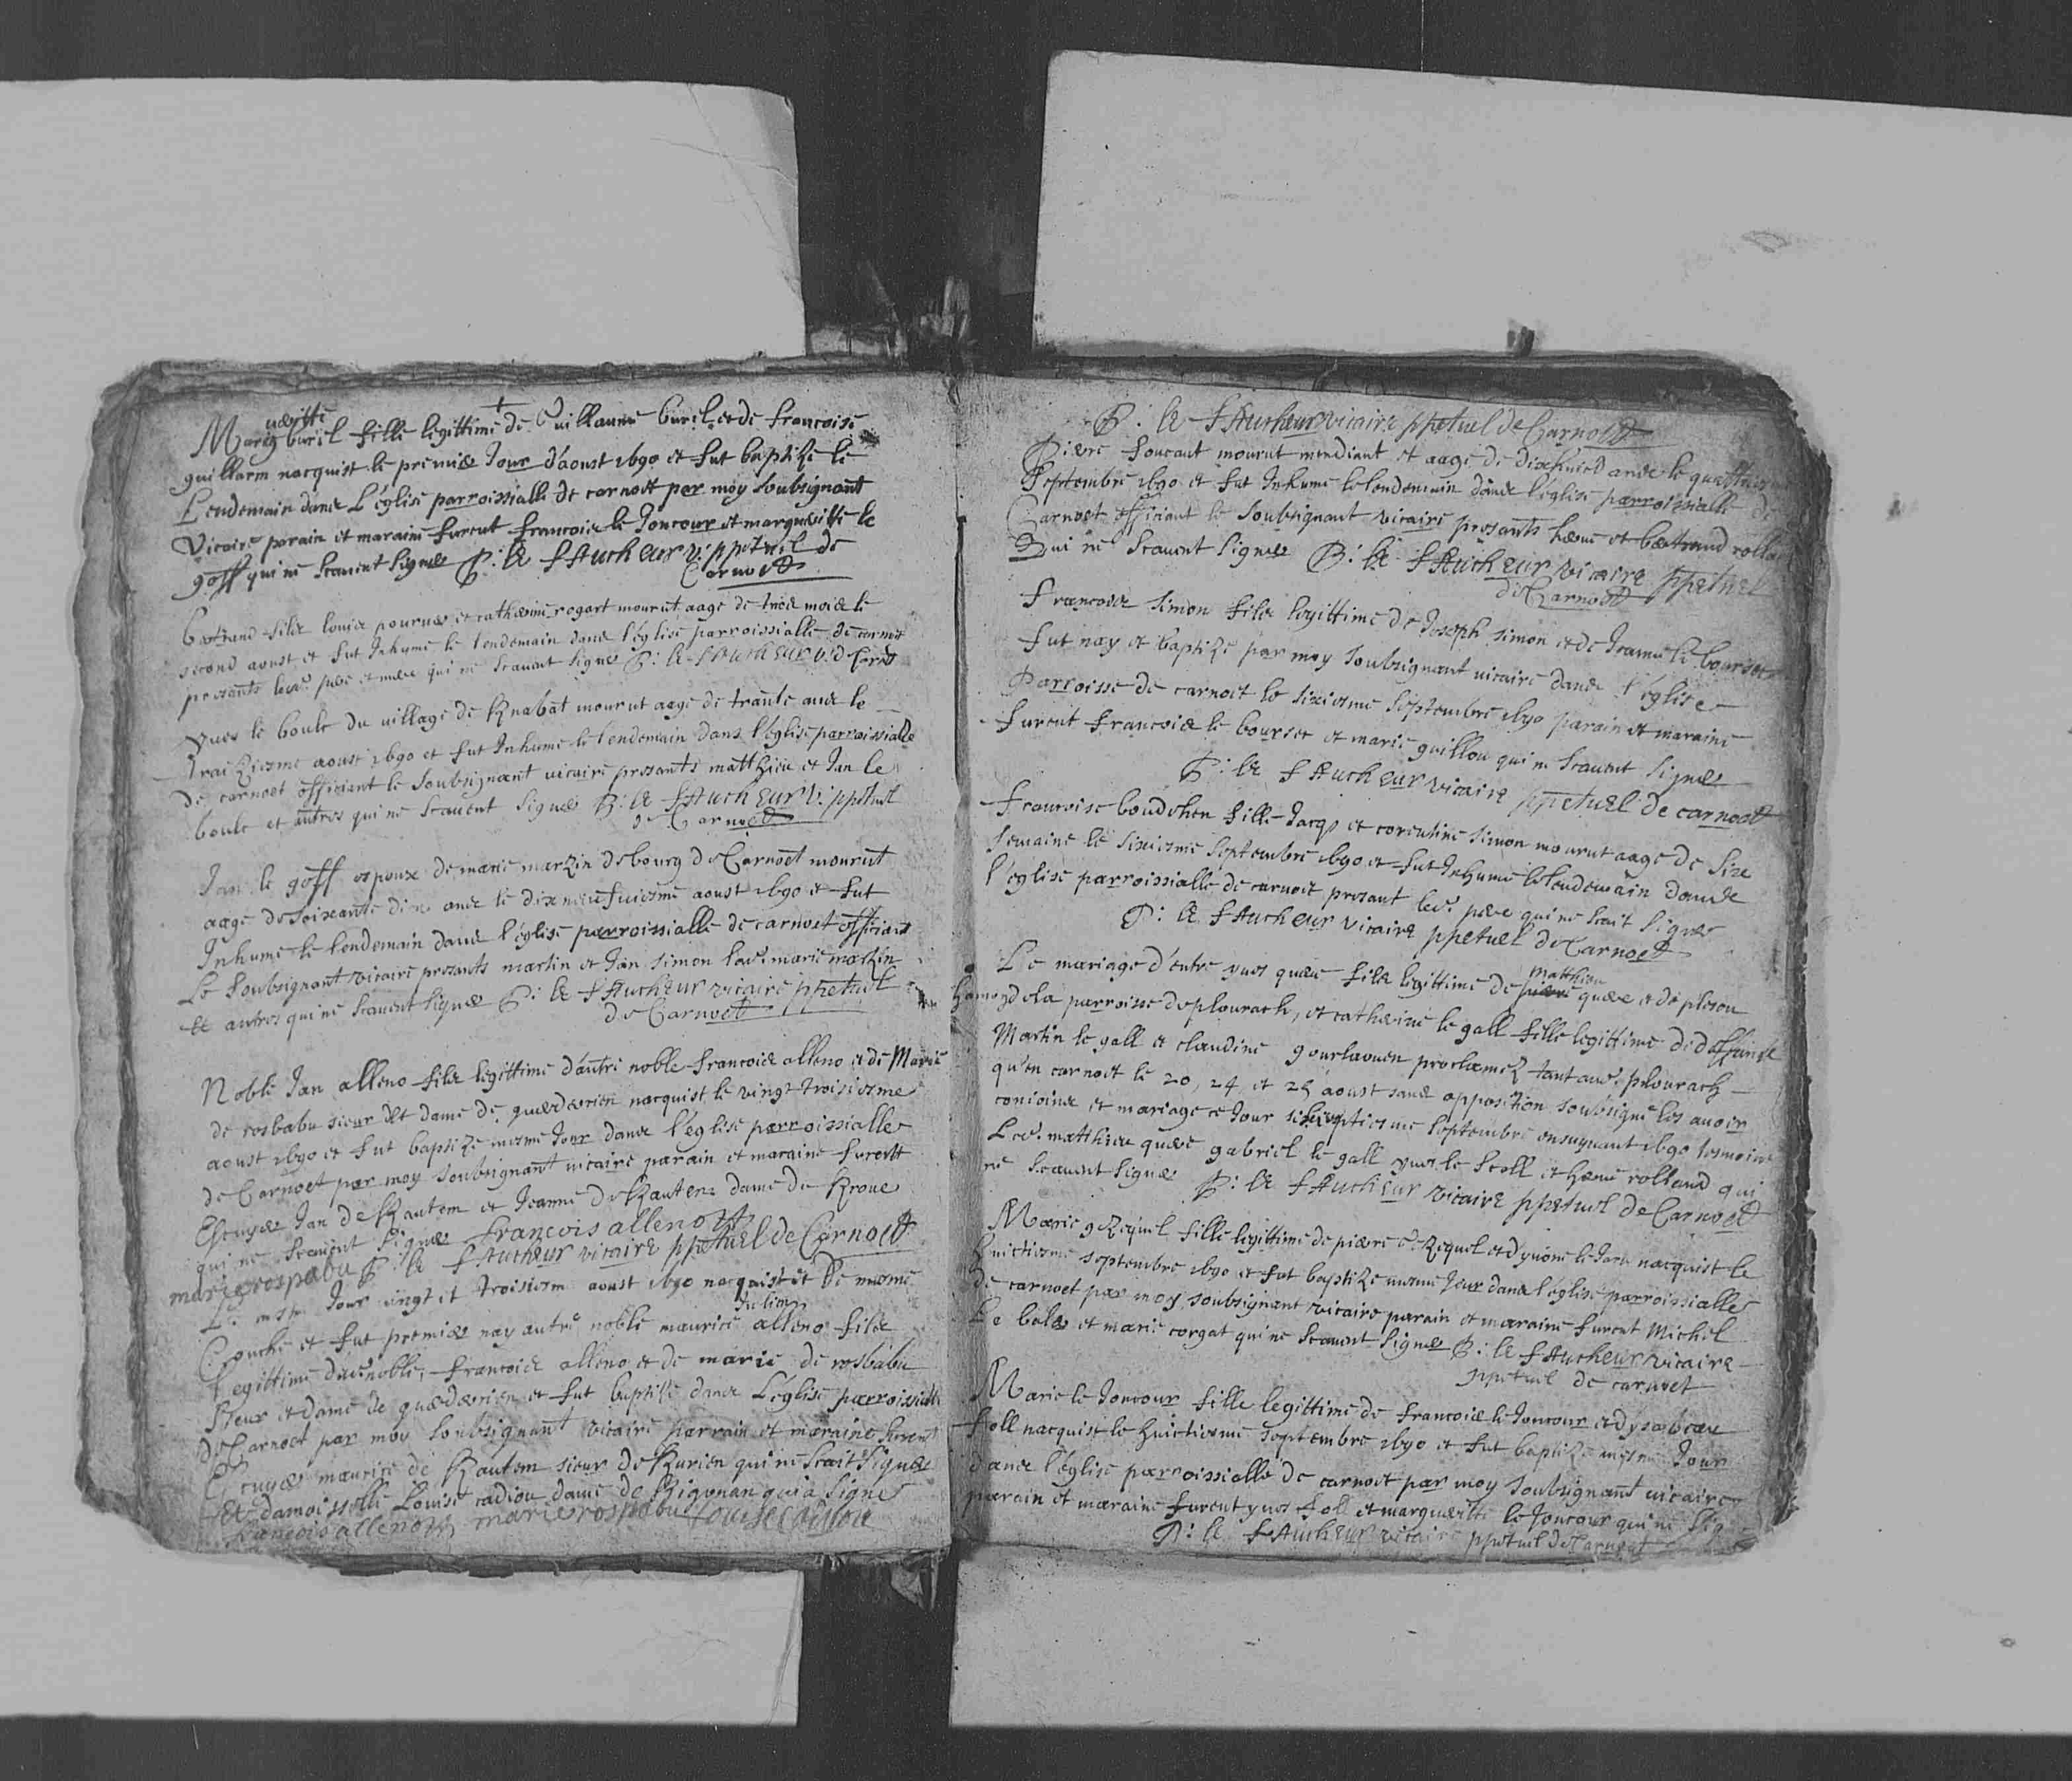 ueritte
Marg buril fille legittime de Guillaume buril et de francoise
guillerm nacquist le premier Jour d'aoust 1690 et fut baptize le
Lendemain dans L'église parroissialle de carnoet par moy soubsignant
Vicaire parain et maraine furent francois le Joncour et margueritte le
goff qui ne scauent signer P: le fAucheur v: ppetuel de
Carnoet
Bertrand fils louis et catherine rogart mourut aage de trois mois le
second aoust et fut Inhumé le lendemain dans l'église parroissialle de carnoet
presants leur pere et mere qui ne scauent signer P: le fAucheur v: d Carnoet
yues le boule du uillage de Knabat mourut aage de trante ans le
traiziesme aoust 1690 et fut Inhumé le lendemain dans l'église parroissialle
de carnoet officiant le soubsignant uicaire presants matthieu et Jan le
boule et autres qui ne scauent signer P: le fAucheur v: ppetuel
de Carnoet
Jan le goff espoux de marie marzin du bourg de Carnoet mourut
aage de soixante dix ans le dixneufuiesme aoust 1690 et fut
Inhumé le lendemain dans l'église parroissialle de carnoet officiant
Le soubsignant vicaire presants martin et Jan simon marie marzin
et autres qui ne scauent signer P: le fAucheur vicaire ppetuel
de Carnoet
Noble Jan alleno fils legittime d'autre noble francois alleno et de Marie
de rosbabu sieur et dame de querderrien nacquist le vingt troisiesme
aoust 1690 et fut baptizé mesme Jour dans l'église parroissialle
de Carnoet par moy soubsignant uicaire parain et maraine furent
Escuyer Jan de Kautem et Jeanne de Kautem dame de Kroue
qui ne scauent signer françois alleno
marie rospabu P: le fAucheur vicaire ppetuel de Carnoet
Le mesme Jour uingt et troisiesm aoust 1690 nacquist et de mesme
Julien
Couche et fut premier nay autre noble maurice alleno fils
Legittime noble francois alleno et de marie de rosbabu
sieur et dame de querderrien et fut baptisé dans L'église parroissialle
de Carnoet par moy soubsignant vicaire parrain et maraine furent
Escuyer maurice de Kautem sieur de Kurien qui ne scait signer
et damoisselle Louise cadiou dame de qui a signé
françois alleno marie rospabu Louise Cadiou
P. le fAucheur vicaire ppetuel de Carnoet
Pierre foucaut mourut mendiant et aage de dixhuict ans le quattriesme
septembre 1690 et fut Inhume le lendemain dans l'église parroissialle de
Carnoet officiant le soubsignant vicaire presants herue et bertrand rolland
Qui ne scauent signer P: le fAucheur vicaire ppetuel
de Carnoet
francois simon fils legittime de Joseph simon et de Jeanne le bourser
fut nay et baptizé par moy soubsignant uicaire dans l'église
Parroisse de carnoet le sixiesme septembre 1690 parain et maraine
furent francois le bourser et marie guillou qui ne scauent signer
P: le fAucheur vicaire ppetuel de carnoet
francoise boudehen fille Jacqs et corentine simon mourut aage de six
semaine le sixiesme septembre 1690 et fut Inhumé le lendemain dans
l'église parroissialle de carnoet presant leur pere qui ne scait signer
P: le fAucheur vicaire ppetuel de Carnoet
matthieu
Le mariage d'entre yues quere fils legittime de quere et de pleson
hamon de la parroisse de plourach, et catherine le gall fille legittime de deffuinct
Martin le gall et claudine gourlaouen proclamez tant aud. plourach
qu'en carnoet le 20, 24 et 25 aoust sans opposition soubsigne les auoir
conioins et mariage ce Jour septiesme septembre ensuyuant 1690 tesmoins
matthieu quere gabriel le gall yues le scoll et herue rolland qui
ne scauent signer P: le fAucheur vicaire ppetuel de Carnoet
Marie gezequel fille legittime de pierre et d'yuone le Jar nacquist le
huictiesme septembre 1690 et fut baptizé mesme Jour dans l'église parroissialle
de carnoet par moy soubsignant vicaire parain et maraine furent Michel
Le baler et marie corgat qui ne scauent signer P: le fAucheur vicaire
ppetuel de carnoet
Marie le Joncour fille legittime de francois le Joncour et d'ysabeau
foll nacquist le huictiesme septembre 1690 et fut baptizé mesme Jour
dans l'église parroissialle de carnoet par moy soubsignant uicaire
parain et maraine furent yues foll et margueritte le Joncour qui ne sig
P: le fAucheur vicaire ppetuel de Carnoet